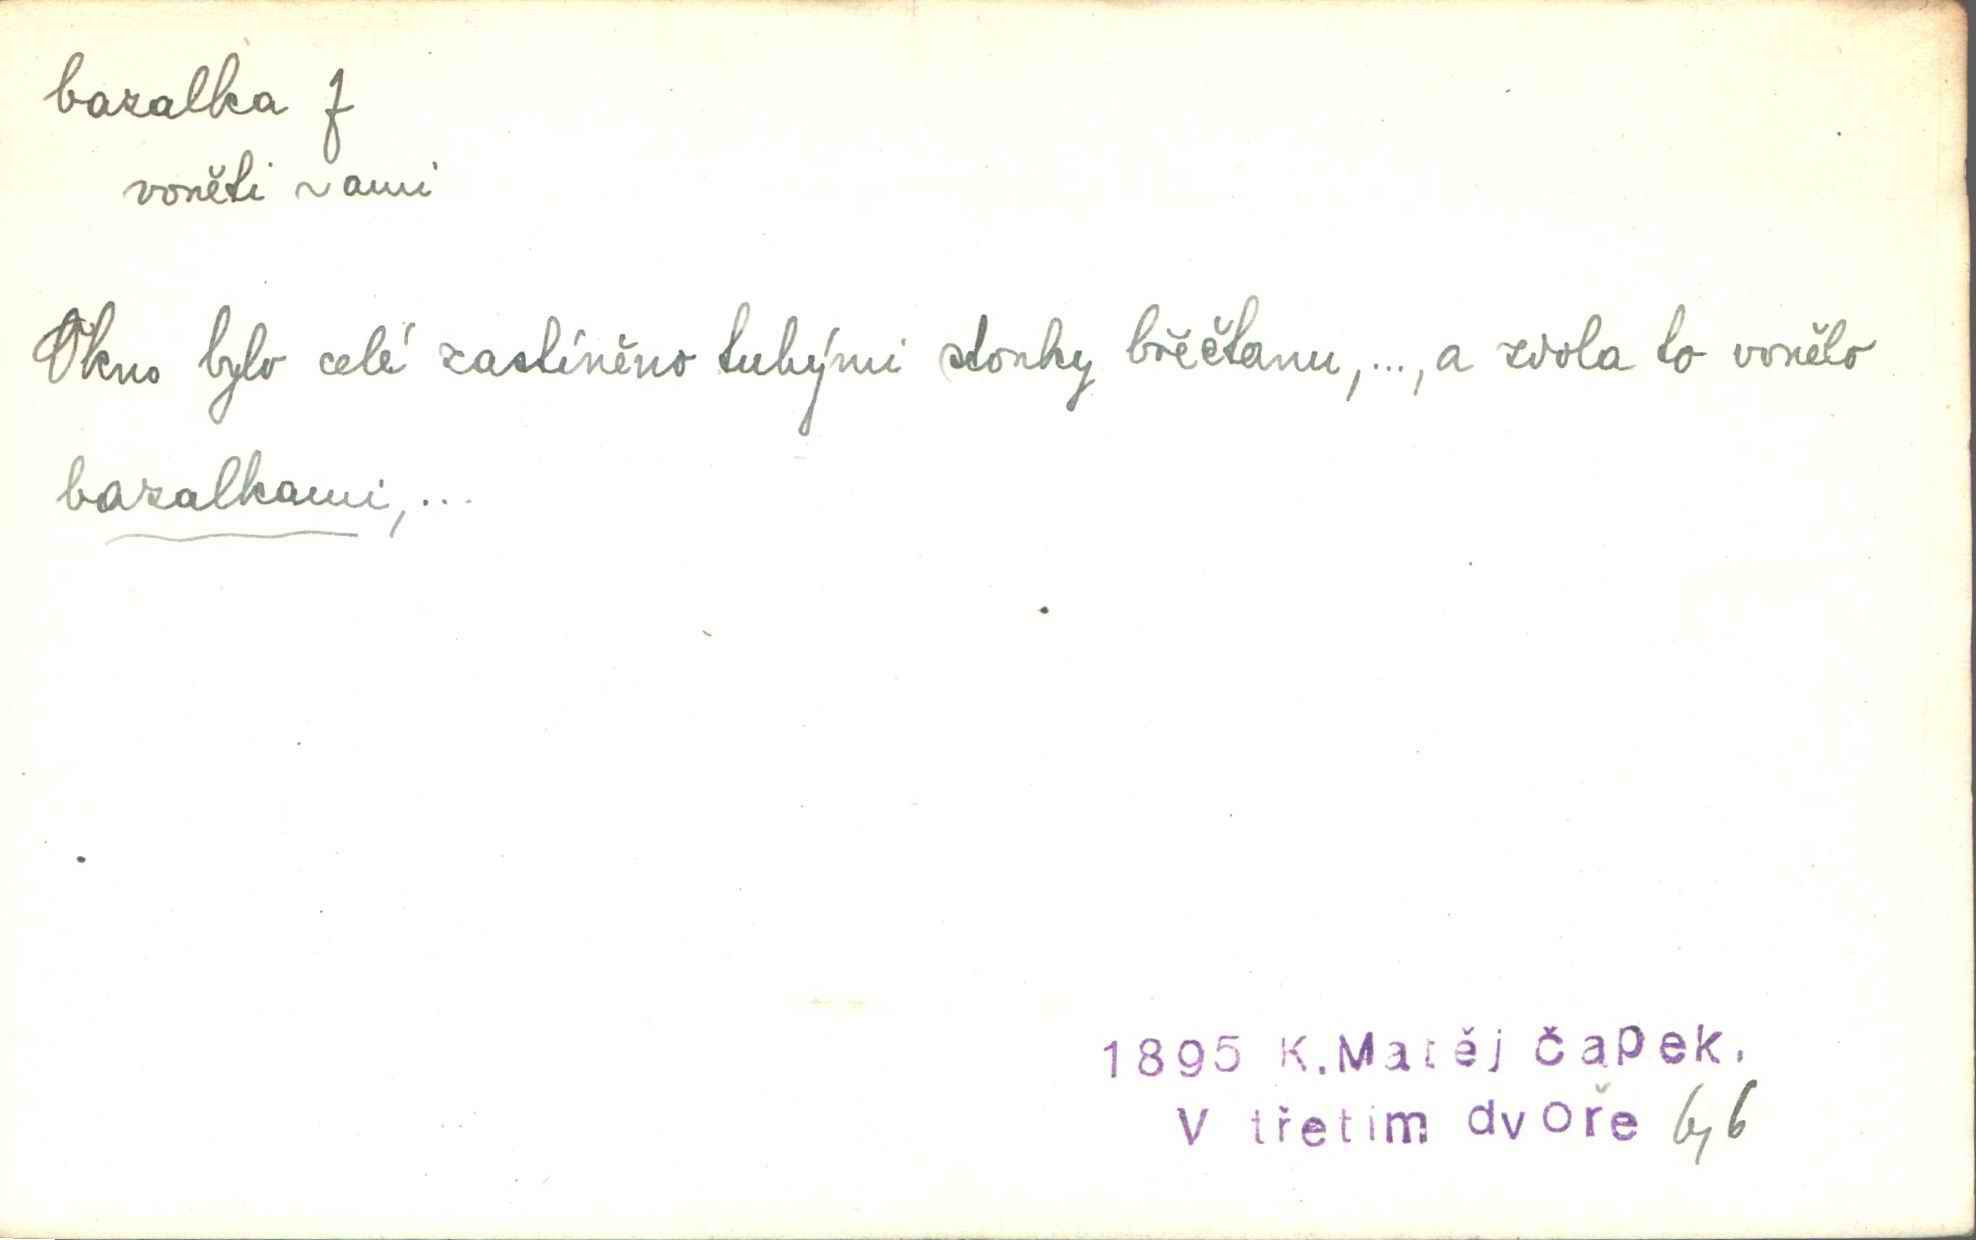 bazalka f
voněti ~ami
Okno bylo celé zastíněno tuhými stonky břečťanu,..., a zdola to vonělo
bazalkami,...
1895 K.Matěj Čapek.
V třetím dvoře